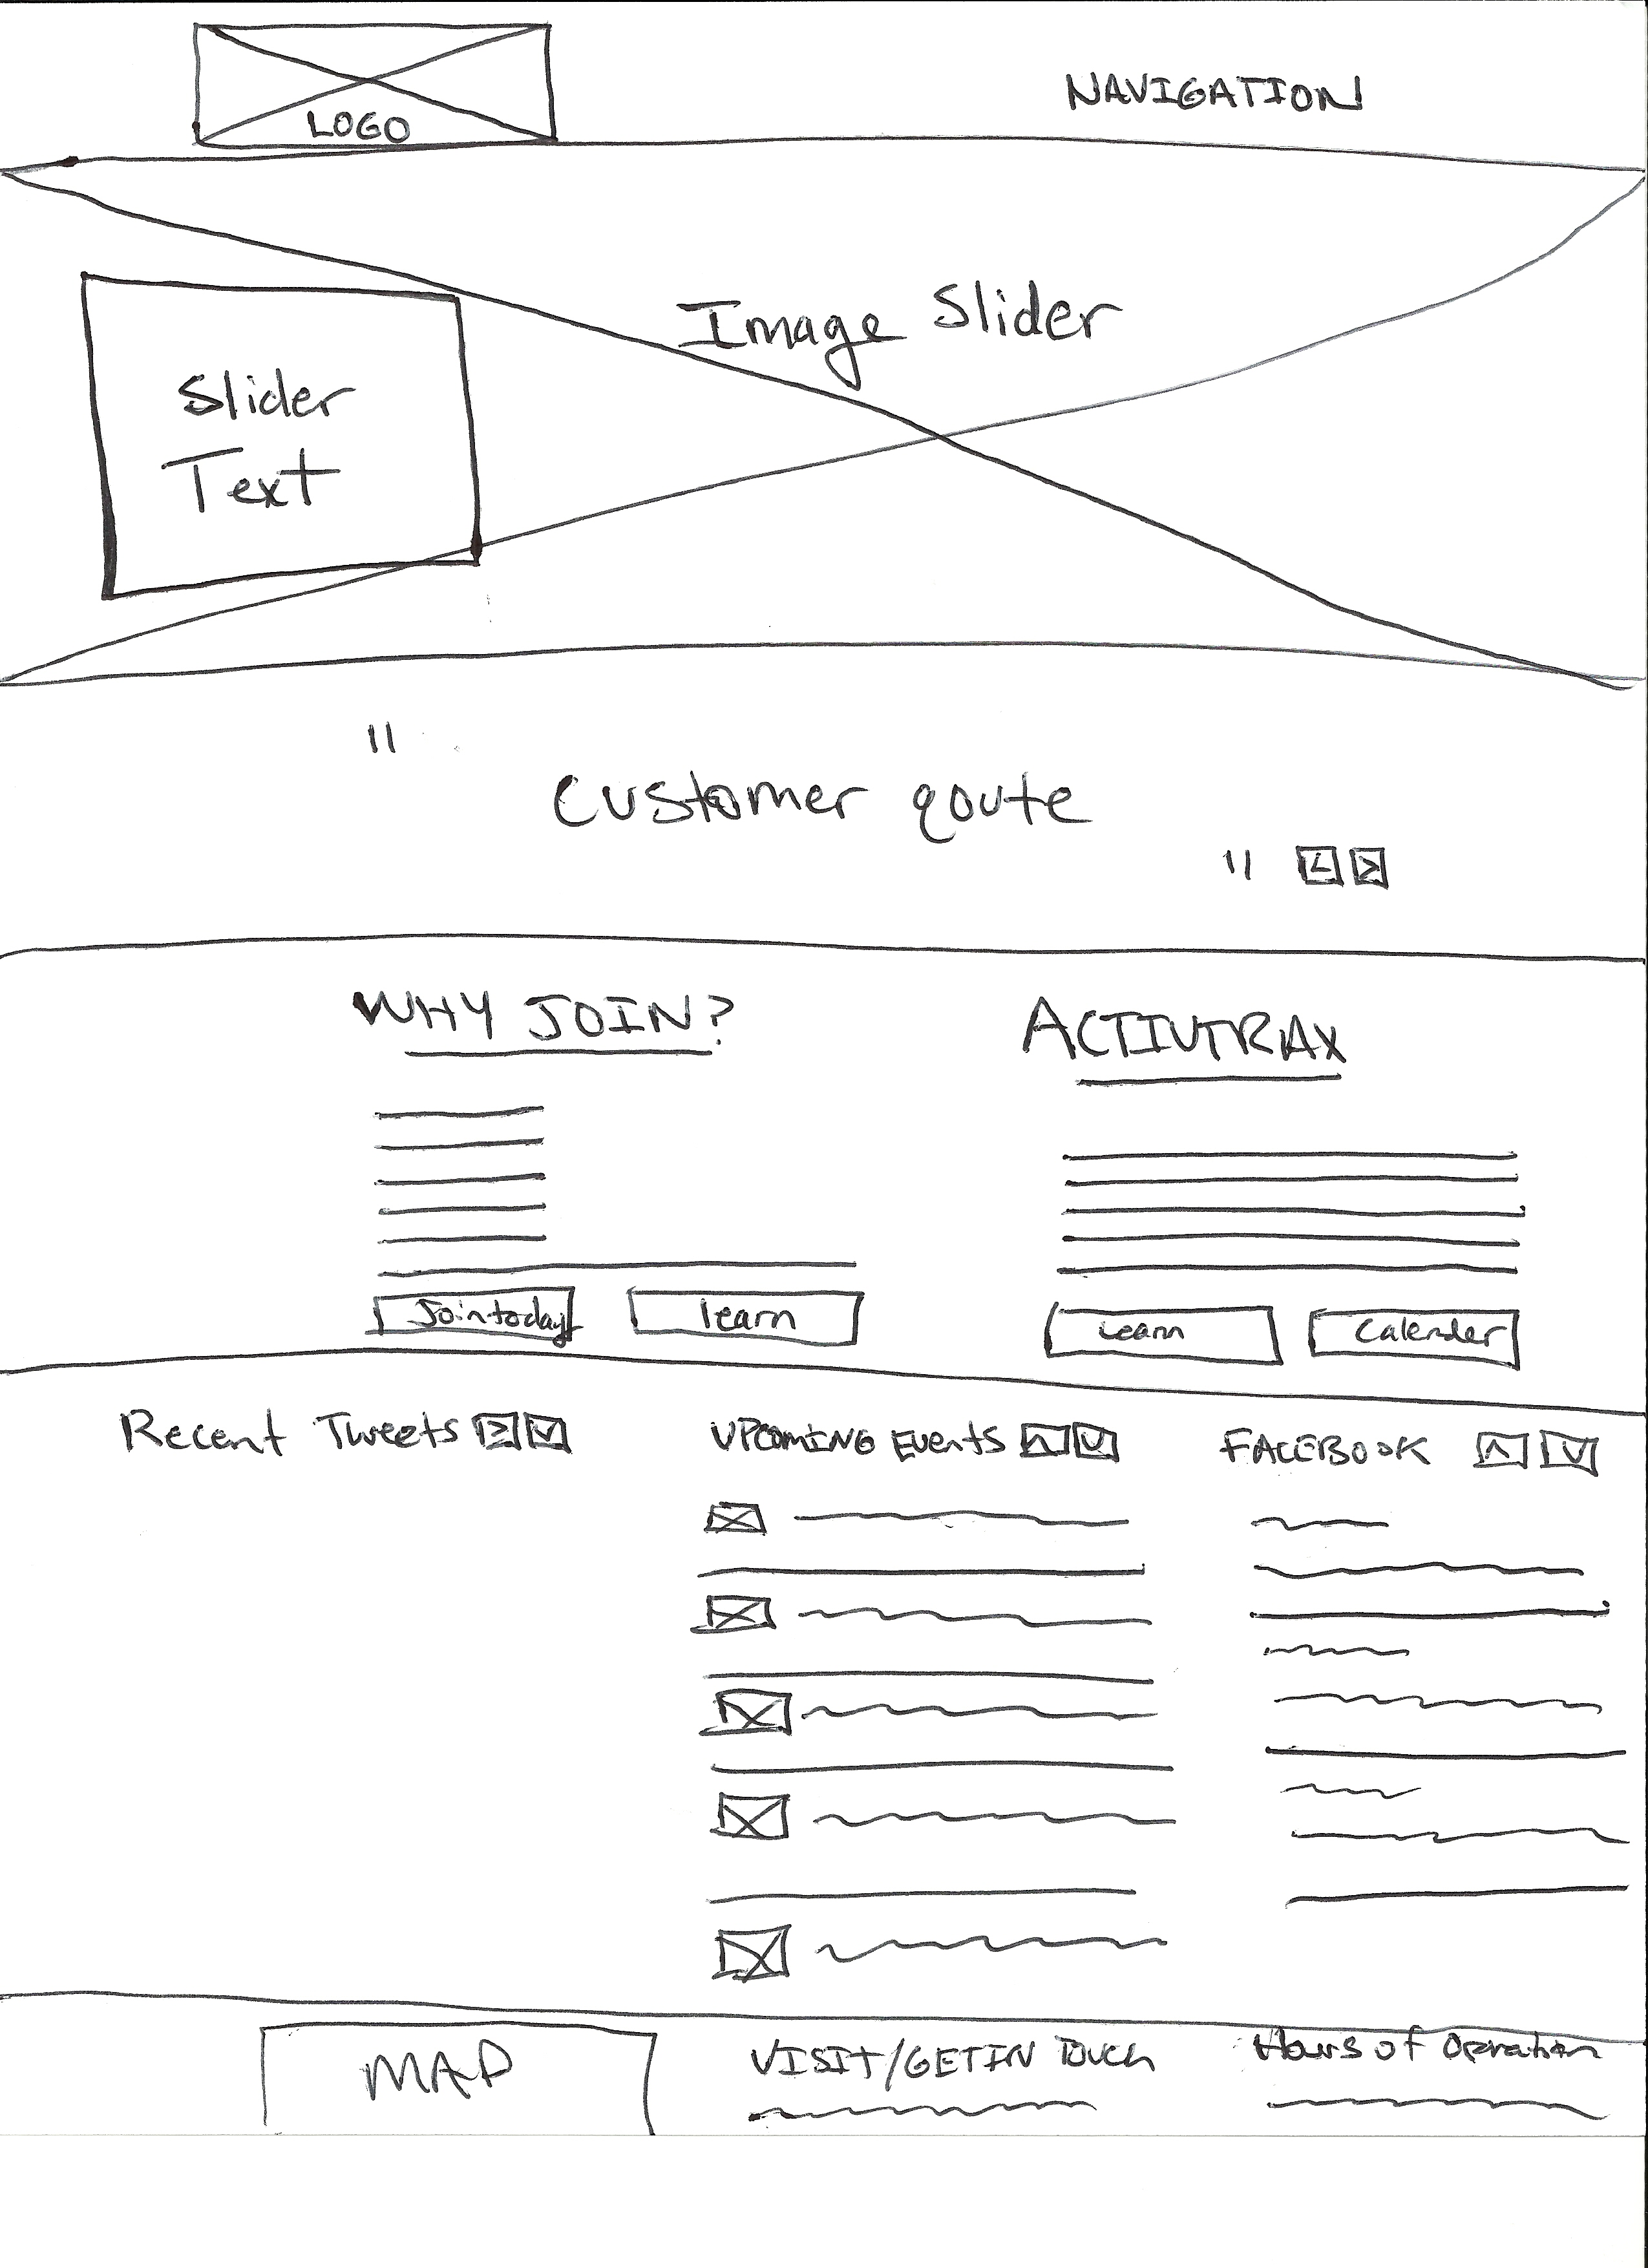 LOGO
NAVIGATION
Image Slider
Slider
Text
"
Customer qoute
" < >
WHY JOIN?
ACTIVTRAX
Join today
learn
Learn
Calender
Recent Tweets > v
UPCOMING EVENTS ^ v
FACEBOOK ^ v
MAP
VISIT/GET IN TOUCH
Hours of Operation